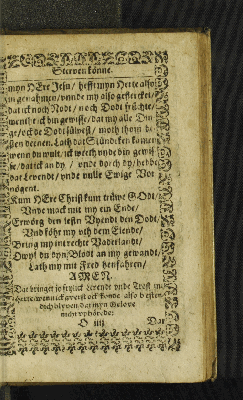 Sterven könne.
myn HErr Jesu / hefft myn Herte also
in genahmen / unde my also gestercket /
dat ick noch Nodt / noch Dodt früchte /
wente ick bin gewisse / dat my alle Din
ge / ock de Dodt sülvest / moth thom be-
sten deenen. Lath dat Stündeken kamen
wenn du wult / ick weth und bin gewis
se / dat ick an dy / unde dorch dy / hebbe
dat Levende / unde vulle Ewige Vor
nögent.
Kum HErr Christ kum trüwe GOdt /
Unde mack mit my ein Ende /
Erwörg den lesten Vyendt den Dodt,
Und föhr my uth dem Elende /
Bring my int rechte Vaderlandt /
Dwyl du dyn Blodt an my gewandt /
Lath my mit Fred henfahren /
AMEN.
Dat bringet jo frylick Levende unde Trost int
Herte, wenn ick averst ock konde also besten-
dich blyven, dat myn Gelove
nicht vphöre, de:
O iiij
Dat